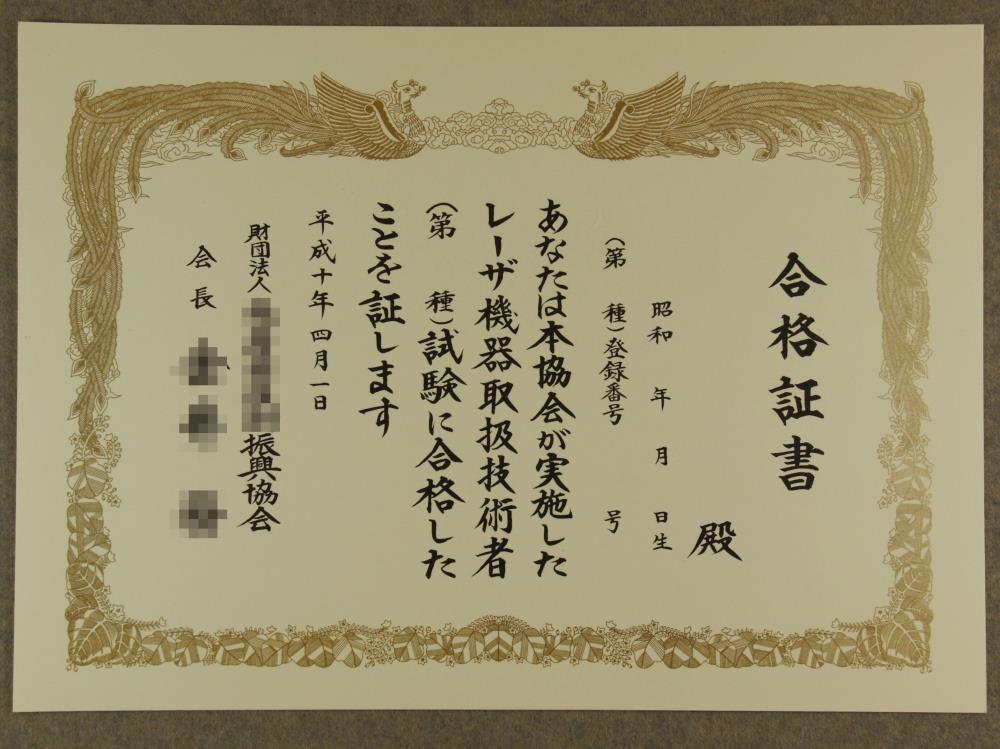 合格証書
殿
昭和 年 月 日生
(第 種)登録番号 号
あなたは本協会が実施した
レーザ機器取扱技術者
(第 種)試験に合格した
ことを証します
平成十年四月一日
財団法人 振興協会
会長